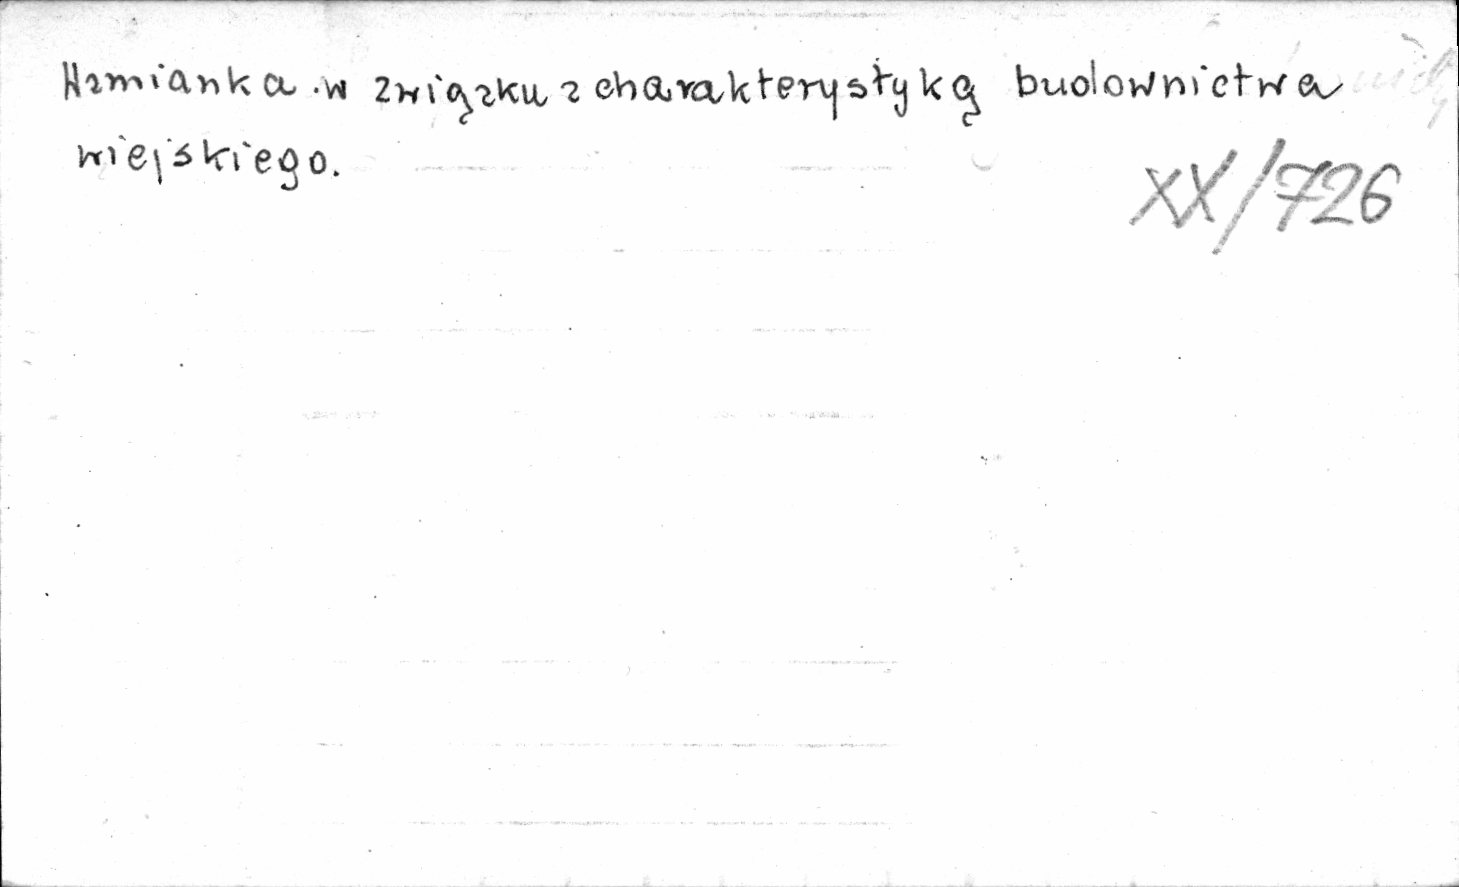 Wzmianka w związku z charakterystyką budownictwa
wiejskiego.
XX/726